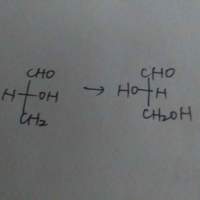 CHO CHO
H OH → HO H
CH2 CH2OH